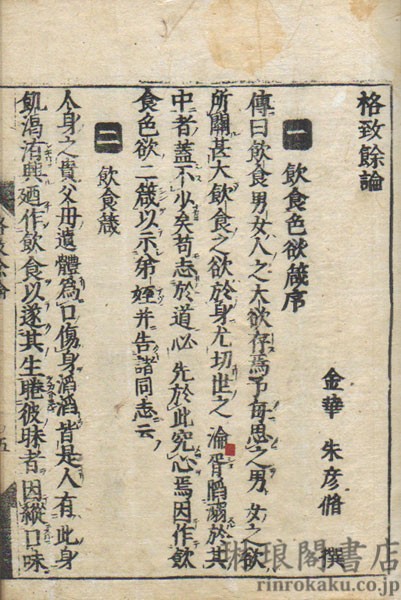 格致餘論
金華 朱彦脩 撰
一 飲食色欲箴序
傳曰飲食男女人之大欲存焉予毎思之男女之欲
所關甚大飲食之欲於身尤切世之淪胥陷溺於其
中者蓋不少矣苟志於道必先於此究心焉因作飲
食色欲二箴以示弟姪并告諸同志云
二 飲食箴
人身之貴父母遺體為口傷身滔滔皆是人有此身
飢渇洊興廼作飲食以遂其生睠彼昧者因縱口味
琳琅閣書店
rinrokaku.co.jp